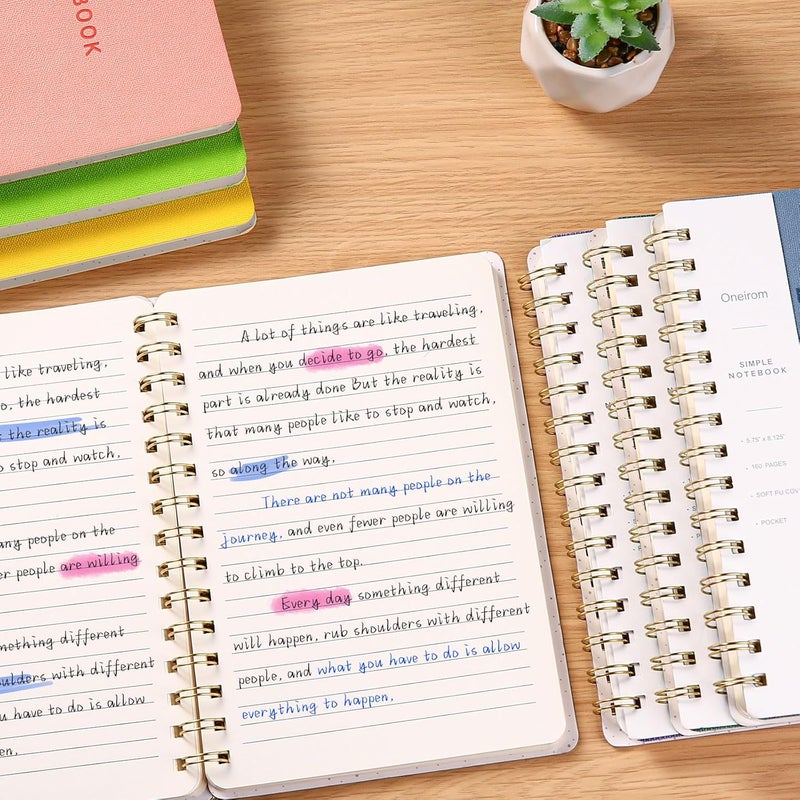 BOOK
like traveling,
o, the hardest
the reality is
stop and watch,
any people on the
er people are willing
mething different
oulders with different
u have to do is allow
en.
A lot of things are like traveling,
and when you decide to go, the hardest
part is already done But the reality is
that many people like to stop and watch,
so along the way,
There are not many people on the
journey, and even fewer people are willing
to climb to the top.
Every day something different
will happen, rub shoulders with different
people, and what you have to do is allow
everything to happen,
Oneirom
SIMPLE
NOTEBOOK
• 5.75" x 8.125"
• 160 PAGES
• SOFT PU COV
• POCKET